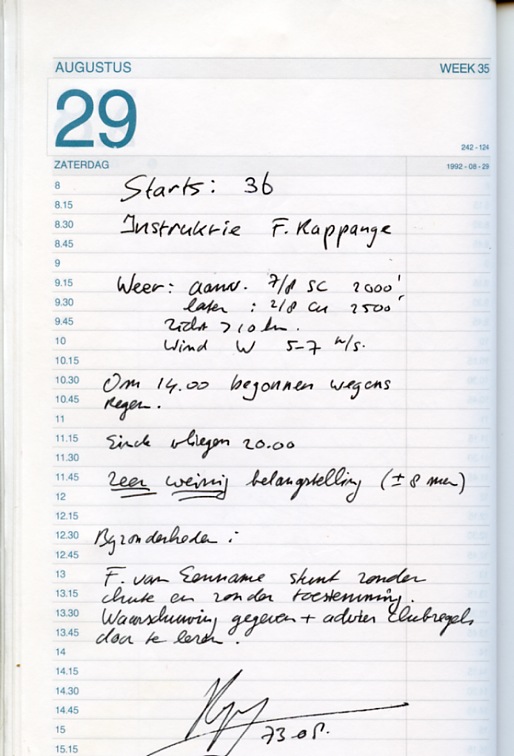 AUGUSTUS WEEK 35
29
242 - 124
ZATERDAG 1992 - 08 - 29
8 Starts: 36
8.15
8.30 Instruktie F. Rappange
8.45
9
9.15 Weer: aanv. 7/8 SC 2000'
9.30 later : 2/8 Cu 2500'
9.45 zicht >10 km.
10 Wind W 5-7 m/s.
10.15
10.30 Om 14.00 begonnen wegens
10.45 Regen.
11
11.15 Einde vliegen 20.00
11.30
11.45 Zeer weinig belangstelling (± 8 man)
12
12.15
12.30 Byzonderheden :
12.45
13 F. van Eenname stunt zonder
13.15 chute en zonder toestemming.
13.30 Waarschuwing gegeven + advies clubregels
13.45 door te lezen.
14
14.15
14.30
14.45
15
15.15